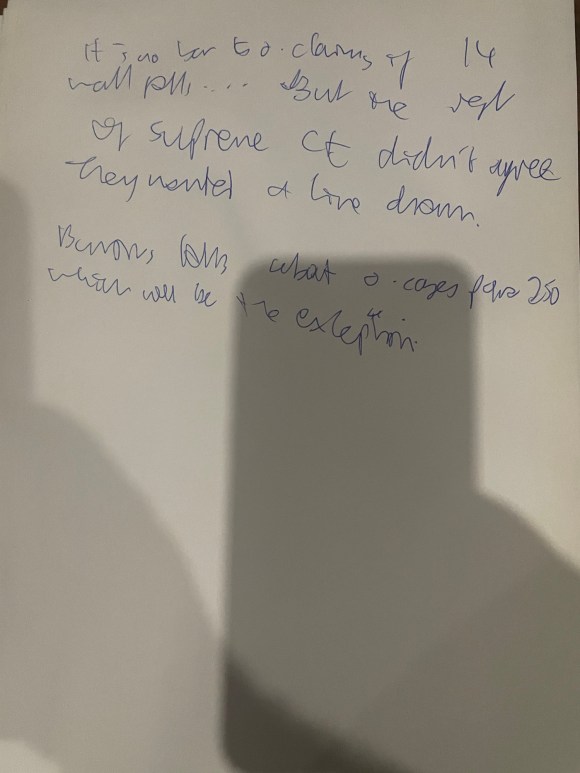 It is no bar to o. claims of 14
.... But the rest
of Supreme Ct didn't agree
they wanted a line drawn.
Burrows talks about o. cases para 250
which will be the exception.